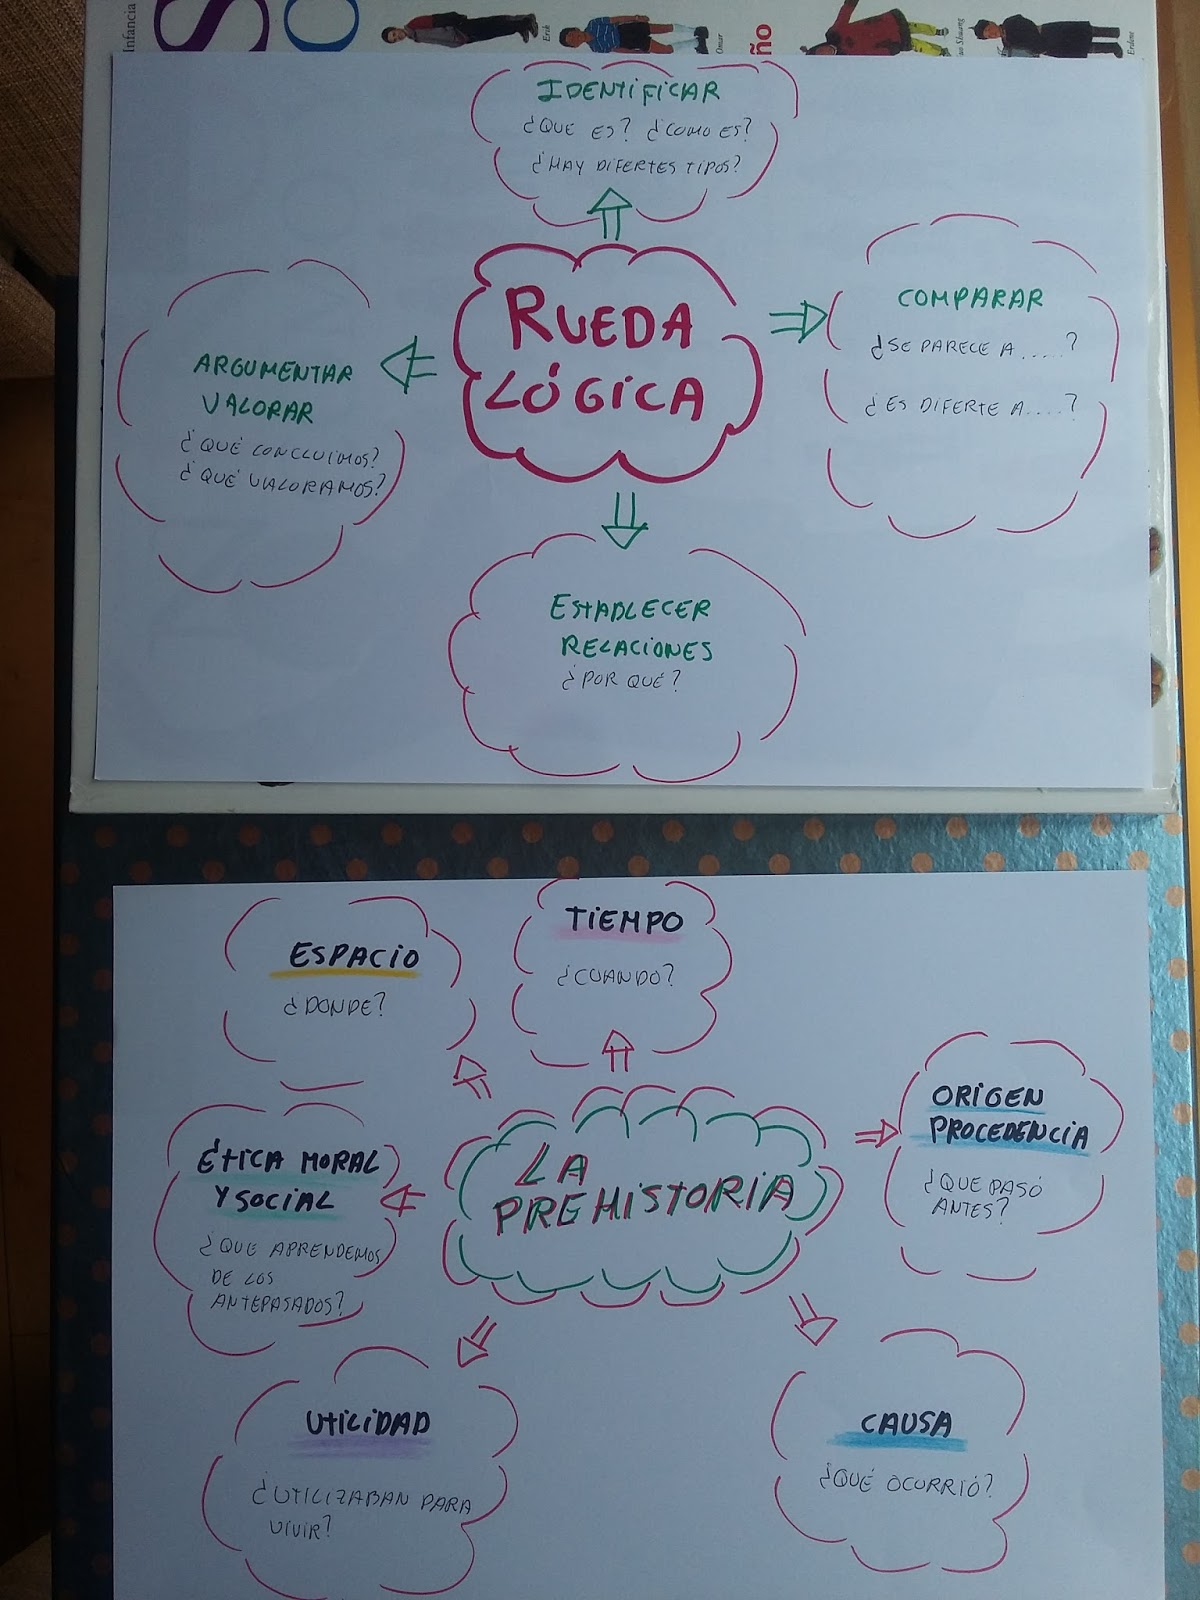 Infancia
S
Erik
Omar
ño
Erdene
IDENTIFICAR
¿QUE ES? ¿COMO ES?
¿HAY DIFERTES TIPOS?
RUEDA
LÓGICA
COMPARAR
¿SE PARECE A.....?
¿ES DIFERTE A....?
ARGUMENTAR
VALORAR
¿QUÉ CONCLUIMOS?
¿QUÉ VALORAMOS?
ESTABLECER
RELACIONES
¿POR QUÉ?
TIEMPO
¿CUANDO?
ESPACIO
¿DONDE?
ORIGEN
PROCEDENCIA
¿QUE PASÓ
ANTES?
ÉTICA MORAL
Y SOCIAL
¿QUE APRENDEMOS
DE LOS
ANTEPASADOS?
LA
PREHISTORIA
UTILIDAD
¿UTILIZABAN PARA
VIVIR?
CAUSA
¿QUÉ OCURRIÓ?